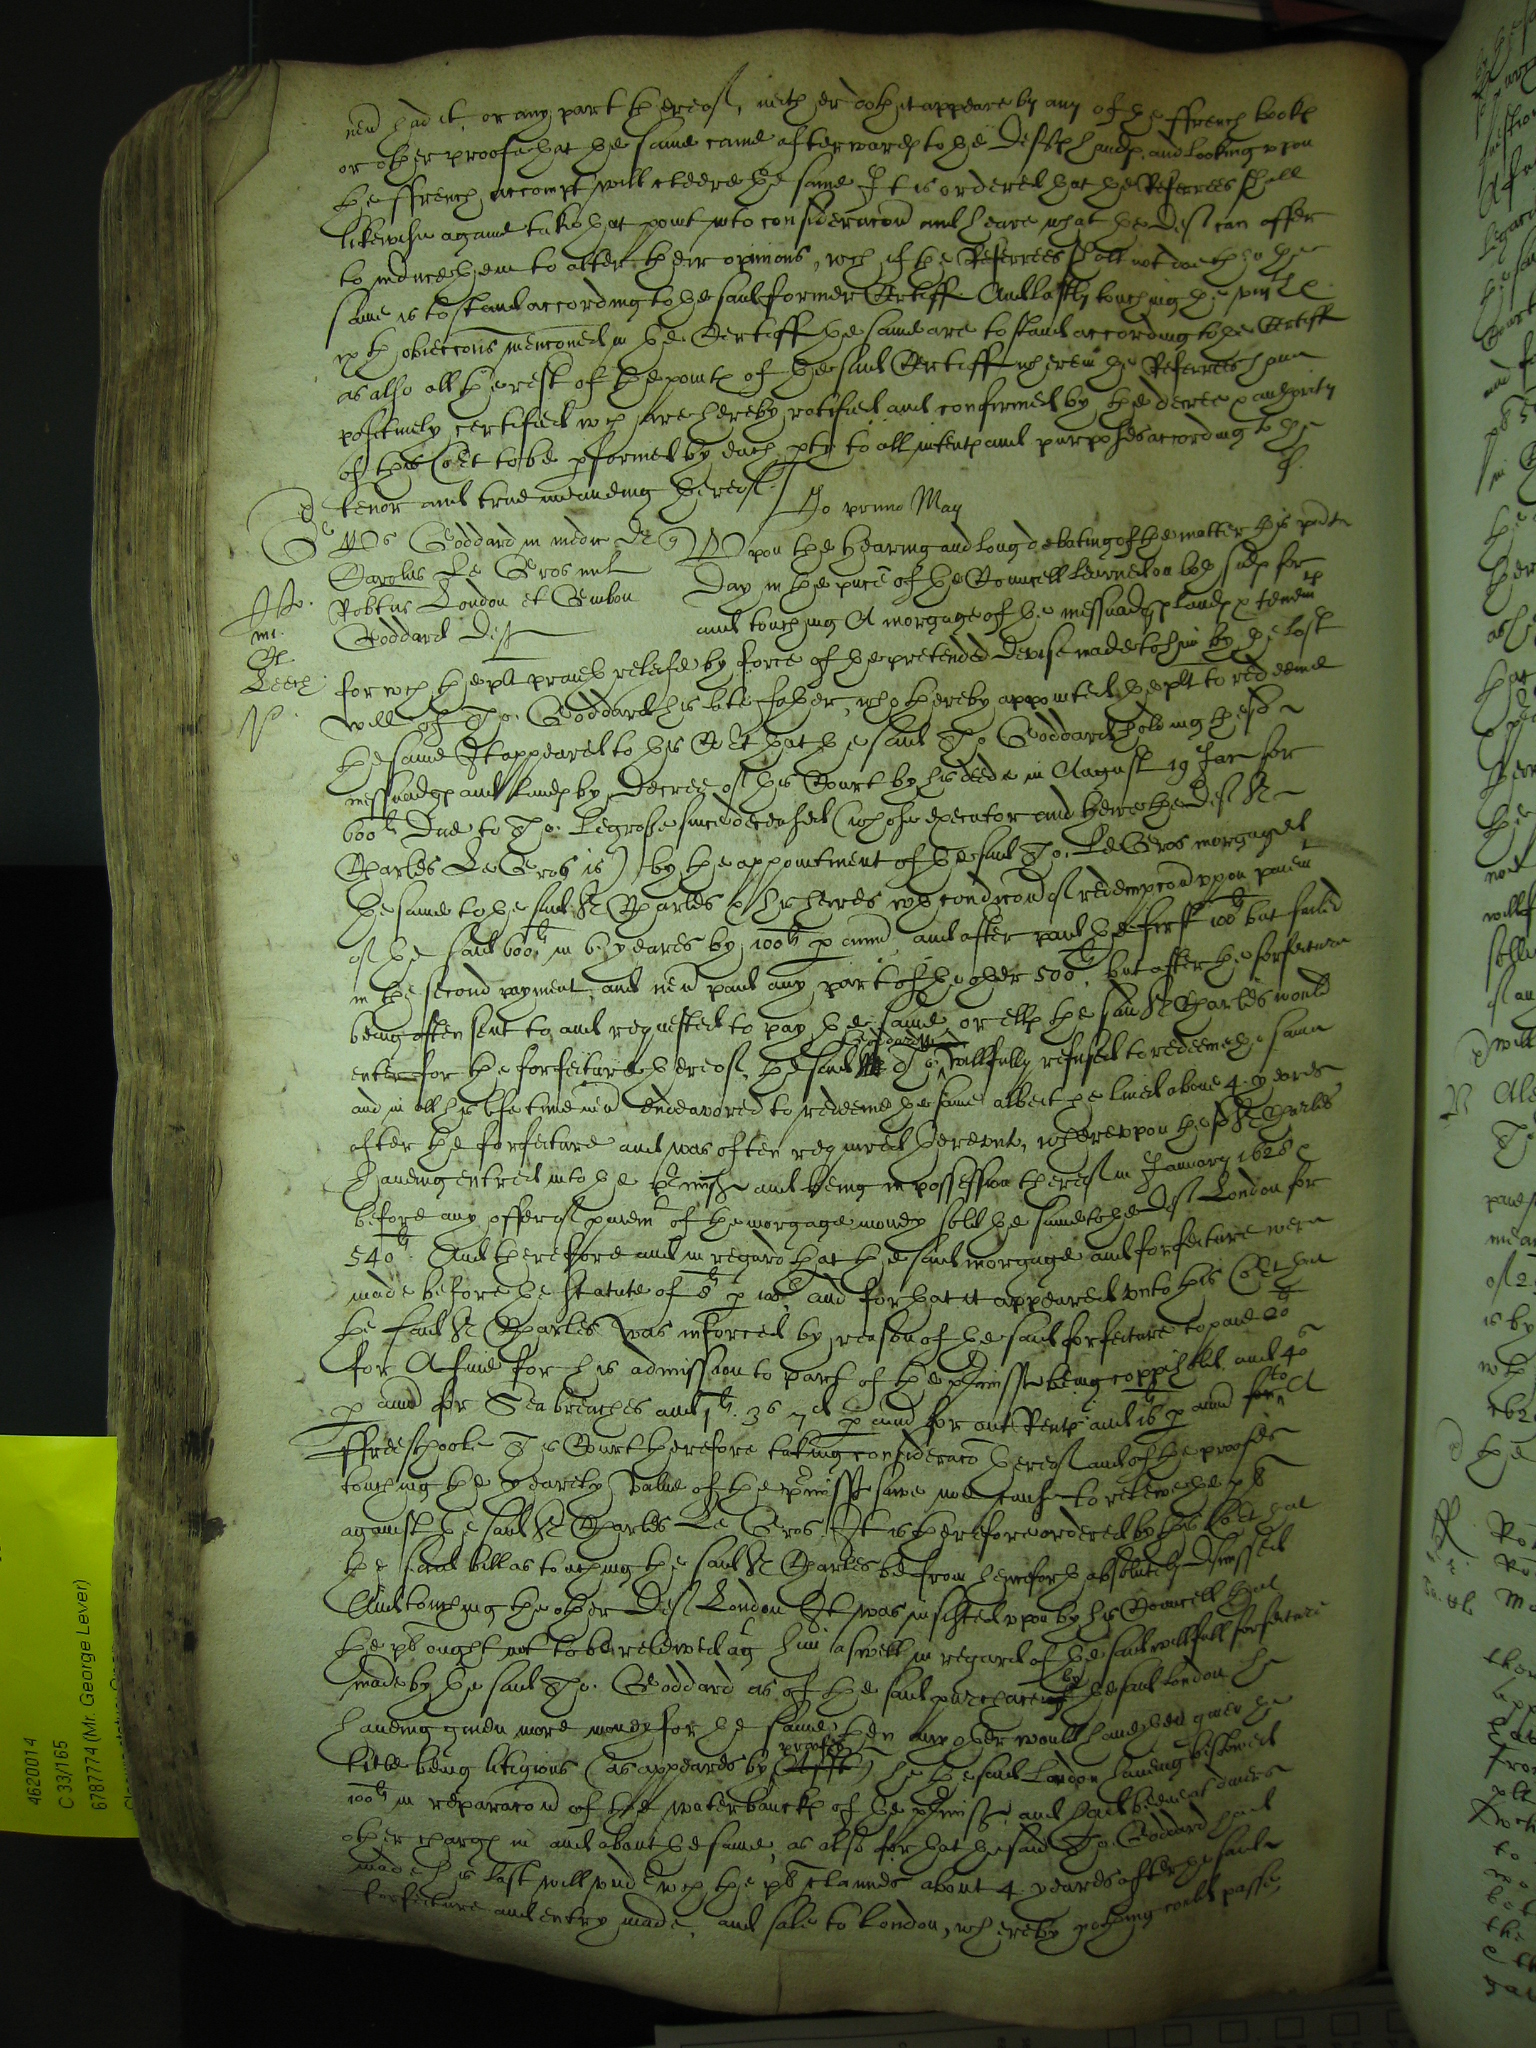 nev͛ had it, or any part thereof, neither doth it appeare by any of the ffrench bookes
or other proofe that the same came afterwards to the Defts hands, and looking upon
the ffrench accompt will cleere the same It is ordered that the Referrees shall
likewise againe take that point into consideracon and heare what the Deft can offer
to induce them to alter their opinions, wch if the Referrees shall not doe then the
same is to stand according to the said former Certiff And lastly touching the
obieccons menconed in the Certiff the same are to stand according to the Certiff
as also all the rest of the points of the said Certiff wherein the Referrees have
positively certified wch are hereby ratified and confirmed by the decree & authority
of this Cort to be pformed by each pty to all intents and purposes according to the
tenor and true meaning thereof
Jo primo May
Goddard
Carolus Le Gros mil
Robtus London et
Goddard Deft
Upon the hearing and long debating of the matter this pnte
day in the pnce of the Councell learned on both sides for
and touching A morgage of the messuadges lands & tenemts
for wch the plt praieth releife by force of the pretended Devise made to him by the last
will of Tho. Goddard his late father, who thereby appointed the plt to redeeme
the same It appeared to this Cort that the said Tho Goddard holding the sd
messuadges and lands by Decree of this Court by his deede in August 19 Jac for
600li Due to Tho. Legrose since deceased (whose executor and heire the Deft Sr
Charles Le Gros is) by the appointment of the said Tho. Le Gros morgaged
the same to the said Sr Charles & his heires wth condicon of redempcon upon paiemt
of the said 600li in 6 yeares by 100li p annu, and after paid the first 100li but failed
in the second payment, and nev͛ paid any part of the other 500li, but after the forfeiture
being often sent to and requested to pay the same, or ells the said Sr Charles would
enter for the forfeiture thereof, the said Tho Goddard willfully refused to redeeme the same
and in all his life time nev͛ endeavored to redeeme the same albeit he lived above 4 yeares
after the forfeiture and was often required thereunto, whereupon the sd Sr Charles
having entred into the pmisses and being in possession thereof in January 1626
before any offer of paiemt of the morgage money sold the same to the Deft London for
540li. And therefore and in regard that the said morgage and forfeiture were
made before the statute of 8li p 100li and for that it appeared unto this Cort that
the said Sr Charles was inforced by reason of the said forfeiture to paie 20li
for A fine for his admission to parte of the pmisses being coppihold, and 40s
p annu for Sea breaches and 1li. 3s 7d p annu for out Rents and 16li p annu for to A
ffreeschoole This Court therefore taking consideracon thereof and of the proofes
touching the yearely value of the pmisses sawe noe cause to releive the plt
against the said Sr Charles Le Gros. It is therefore ordered by this Cort that
the said bill as touching the said Sr Charles be from henceforth absolutely dismissed
And touching the other Deft London It was insisted upon by his Councell that
the plt ought not to be releived agt him aswell in regard of the said willfull forfeiture
made by the said Tho. Goddard as of the said purchase by the said London he
having given more money for the same then any other would have then given the
title being litigious (as appeares by proofes) he the said London having bestowed
100li in reparacon of the water bancks of the pmisses and had been at divers
other charges in and about the same, as also for that the said Tho. Goddard had
made his last will under wch the plt claimes about 4 yeares after the said
forfeiture and entry made, and sale to London, whereby nothing could passe
4620014
C 33/165
6787774 (Mr. George Lever)